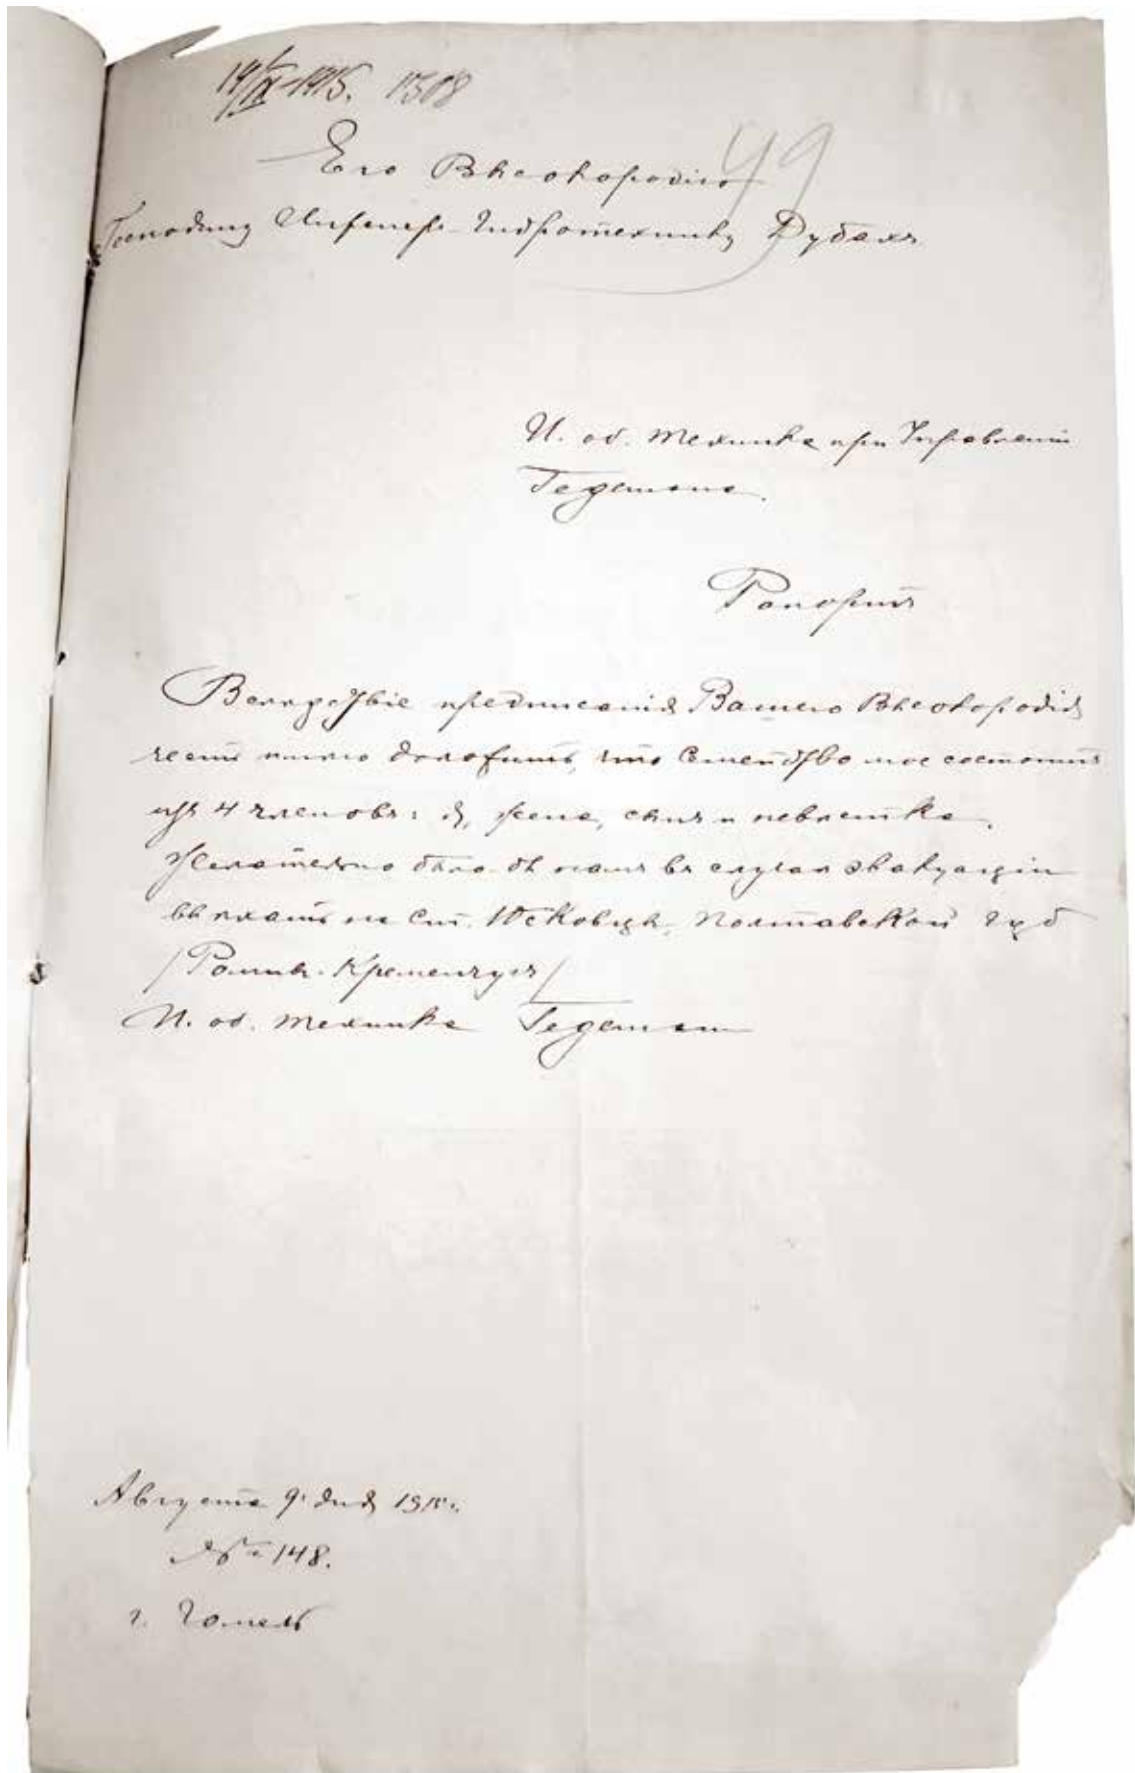 14/IX-1915. 1308
49
Его Высокородию
Господину Инженер-Гидротехнику Дубахъ
И. об. техника при Управленіи
Гедеманъ.
Рапортъ
Вслѣдствіе предписанія Вашего Высокородія
честь имѣю доложить, что Семейство мое состоитъ
изъ 4 членовъ: я, жена, сынъ и невѣстка.
Желательно было бы намъ въ случаѣ эвакуаціи
выѣхать на Ст. Юсковцы, Полтавской губ
/Ромны-Кременчугъ/
И. об. техника
Августа 9 дня 1915 г.
№ 148.
г. Гомель